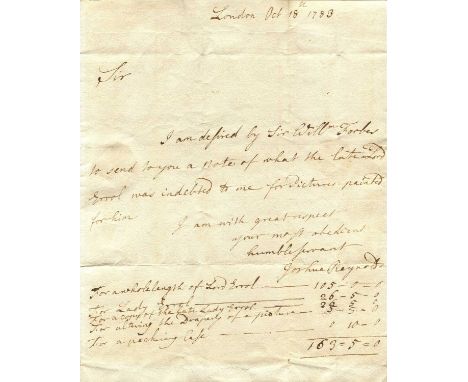 London Oct 18th 1783
Sir
I am desired by Sir Willm Forbes
to send to you a Note of what the late Lord
Errol was indebted to me for Pictures painted
for him
I am with great respect
your most obedient
humble servant
Joshua Reynolds
For a whole length of Lord Errol — 105 – 0 – 0
For Lady Errol — 26 – 5 – 0
For a copy of the late Lady Errol — 26 5
For altering the Drapery of a picture — 5 – 5 – 0
For a packing Case 0 10 – 0
163 = 5 = 0